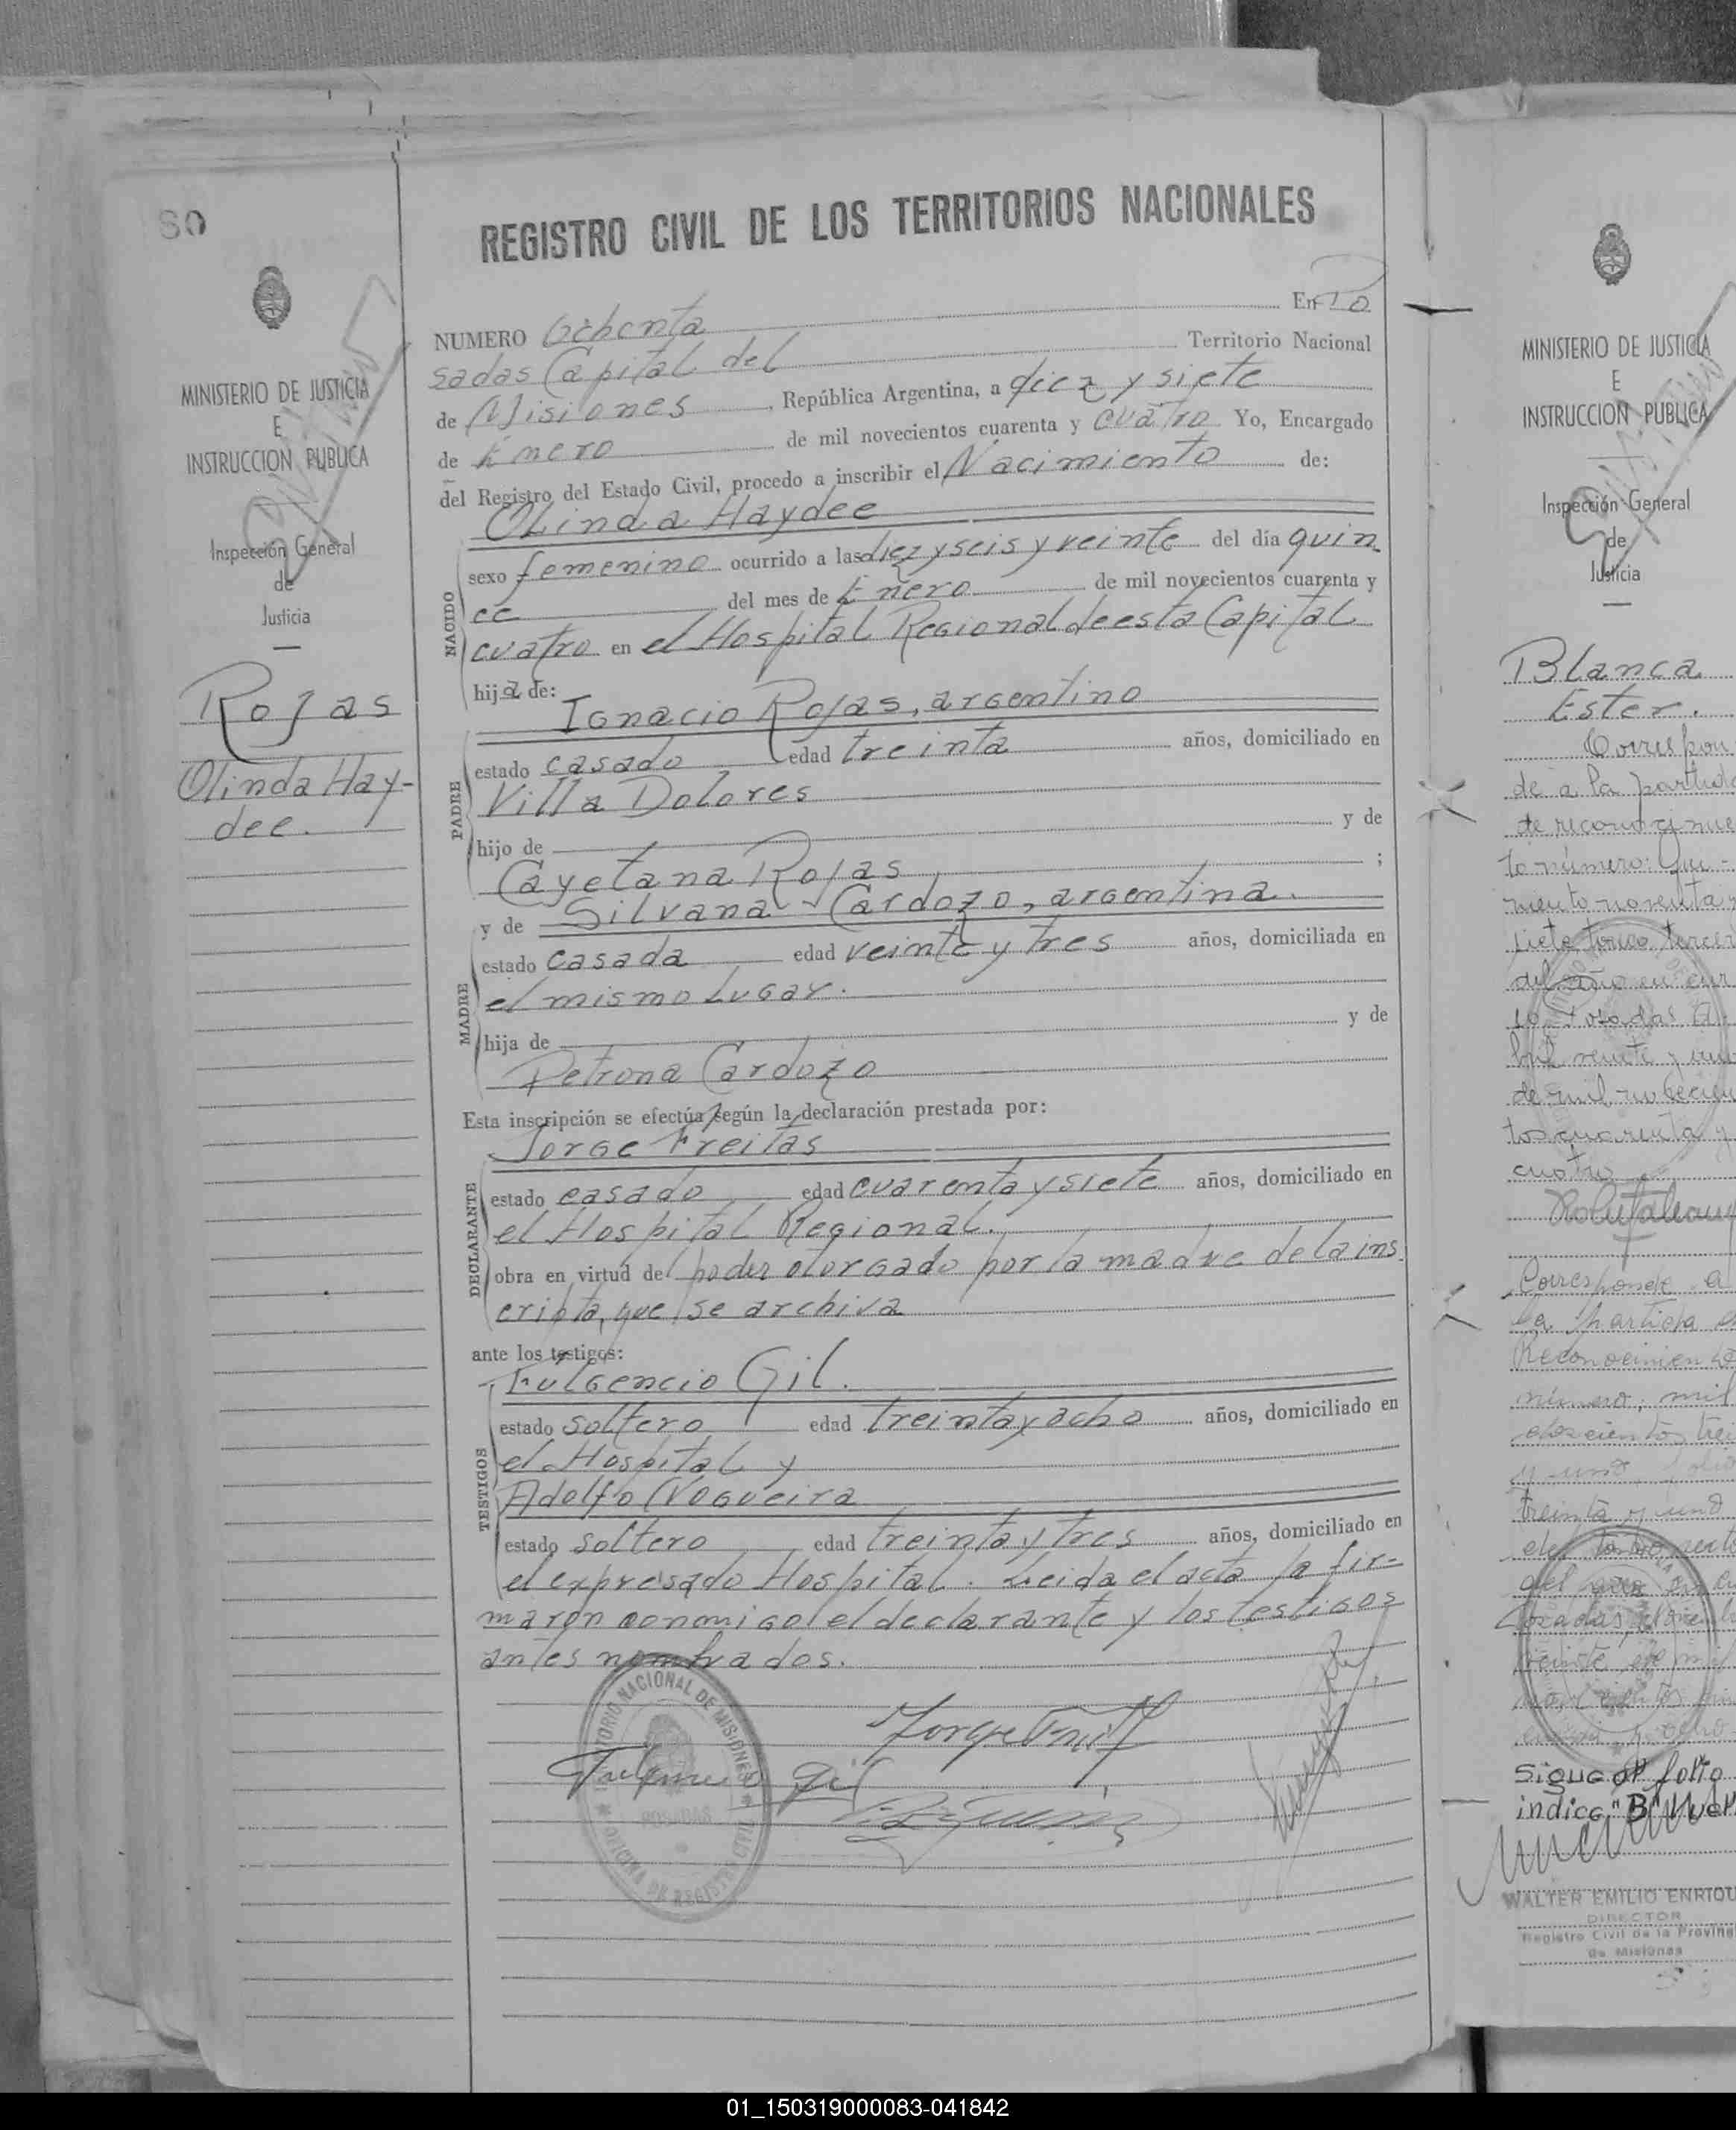 80
MINISTERIO DE JUSTICIA
E
INSTRUCCION PUBLICA
Inspección General
de
Justicia
Rojas
Olinda Hay-
dee.
REGISTRO CIVIL DE LOS TERRITORIOS NACIONALES
NUMERO Ochenta En Po
sadas Capital del Territorio Nacional
de Misiones, República Argentina, a diez y siete
de Enero de mil novecientos cuarenta y cuatro Yo, Encargado
del Registro del Estado Civil, procedo a inscribir el Nacimiento de:
NACIDO
Olinda Haydee
sexo femenino ocurrido a las diez y seis y veinte del día quin
ce del mes de Enero de mil novecientos cuarenta y
cuatro en el Hospital Regional de esta Capital
hija de:
PADRE
Ignacio Rojas, argentino
estado casado edad treinta años, domiciliado en
Villa Dolores
hijo de y de
Cayetana Rojas ;
MADRE
y de Silvana Cardozo, argentina.
estado casada edad veinte y tres años, domiciliada en
el mismo lugar.
hija de y de
Petrona Cardozo
Esta inscripción se efectúa según la declaración prestada por:
DECLARANTE
Jorge Freitas
estado casado edad cuarenta y siete años, domiciliado en
el Hospital Regional.
obra en virtud del poder otorgado por la madre de la ins
cripta, que se archiva
ante los testigos:
TESTIGOS
Fulgencio Gil.
estado soltero edad treinta y ocho años, domiciliado en
el Hospital y
Adolfo Nogueira
estado soltero edad treinta y tres años, domiciliado en
el expresado Hospital. Leida el acta la fir-
maron conmigo el declarante y los testigos
antes nombrados.
TERRITORIO NACIONAL DE MISIONES
POSADAS
OFICINA DE REGISTRO CIVIL
Fulgencio Gil
MINISTERIO DE JUSTICIA
E
INSTRUCCION PUBLICA
Inspección General
de
Justicia
Blanca
Ester.
Correspon
de a la partida
de reconocimie
to número: Qui-
niento noventa y
siete tomo tercer
del año en cur
so Posadas A
bril veinte y uno
de mil novecien
tos cuarenta y
cuatro
Corresponde a
la partida
Reconocimiento
número, mil
doscientos trei
y uno, folio
treinta y uno
del tomo
del
Posadas,
veinte de mil
Sigue al folio
indice "B"
WALTER EMILIO ENRIQU
DIRECTOR
Registro Civil de la Provinc
de Misiones
01_150319000083-041842